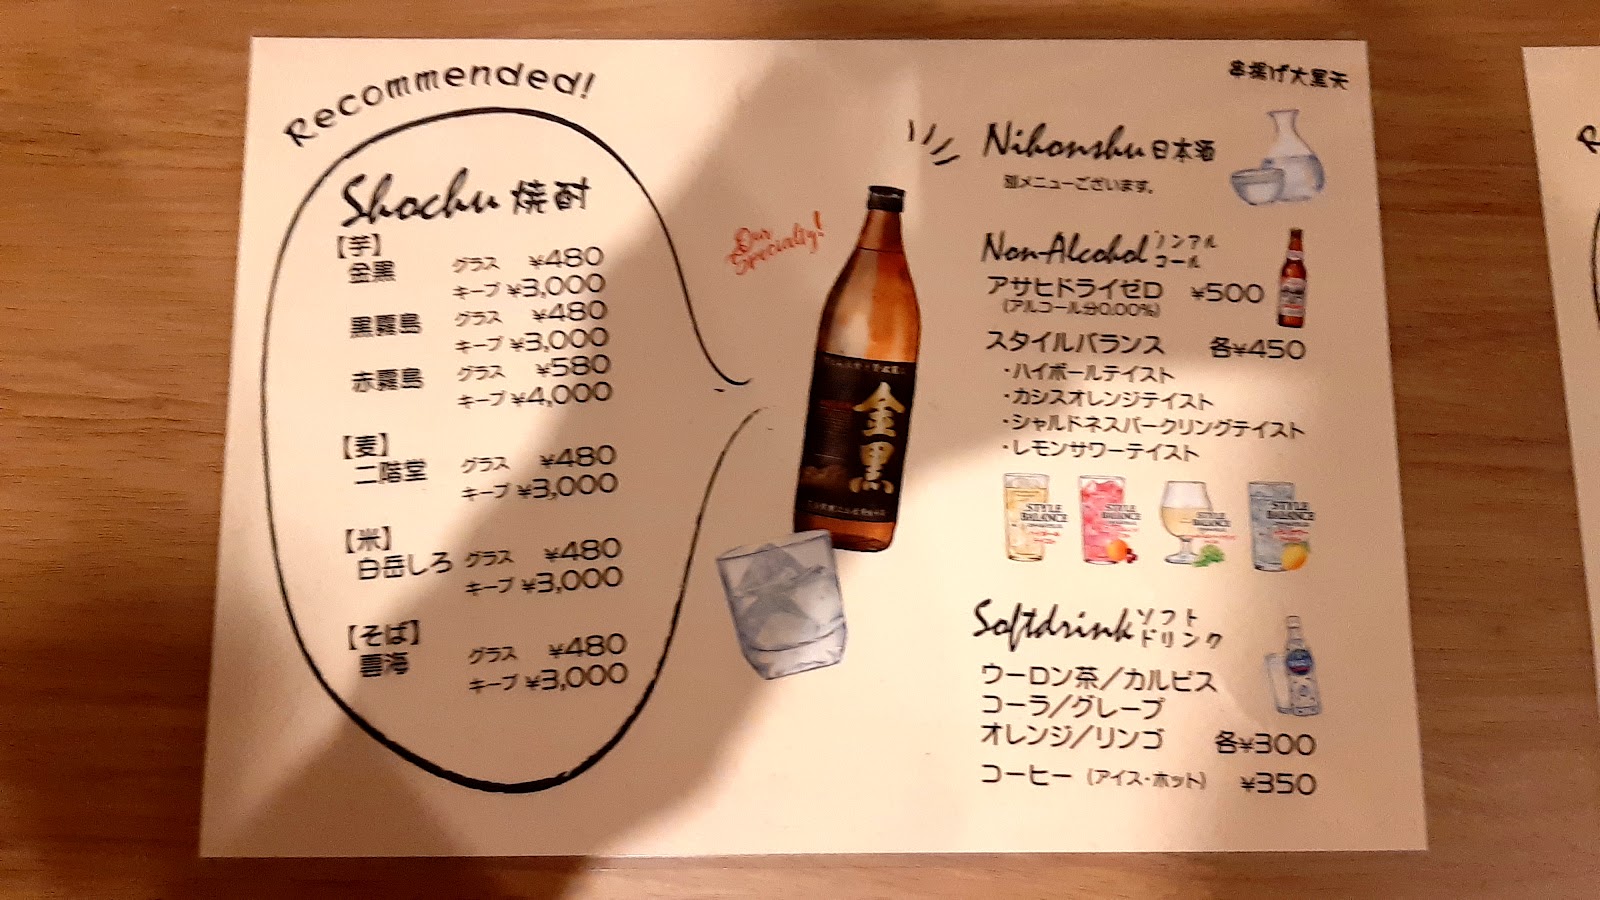 Recommended!
Shochu 焼酎
【芋】
金黒 グラス ¥480
キープ ¥3,000
黒霧島 グラス ¥480
キープ ¥3,000
赤霧島 グラス ¥580
キープ ¥4,000
【麦】
二階堂 グラス ¥480
キープ ¥3,000
【米】
白岳しろ グラス ¥480
キープ ¥3,000
【そば】
雲海 グラス ¥480
キープ ¥3,000
Our
Specialty!
金黒
串揚げ大黒天
Nihonshu 日本酒
別メニューございます。
Non-Alcohol ノンアル
コール
アサヒドライゼロ ¥500
(アルコール分0.00%)
スタイルバランス 各¥450
・ハイボールテイスト
・カシスオレンジテイスト
・シャルドネスパークリングテイスト
・レモンサワーテイスト
STYLE
BALANCE
STYLE
BALANCE
STYLE
BALANCE
STYLE
BALANCE
Softdrink ソフト
ドリンク
ウーロン茶/カルピス
コーラ/グレープ
オレンジ/リンゴ 各¥300
コーヒー (アイス・ホット) ¥350